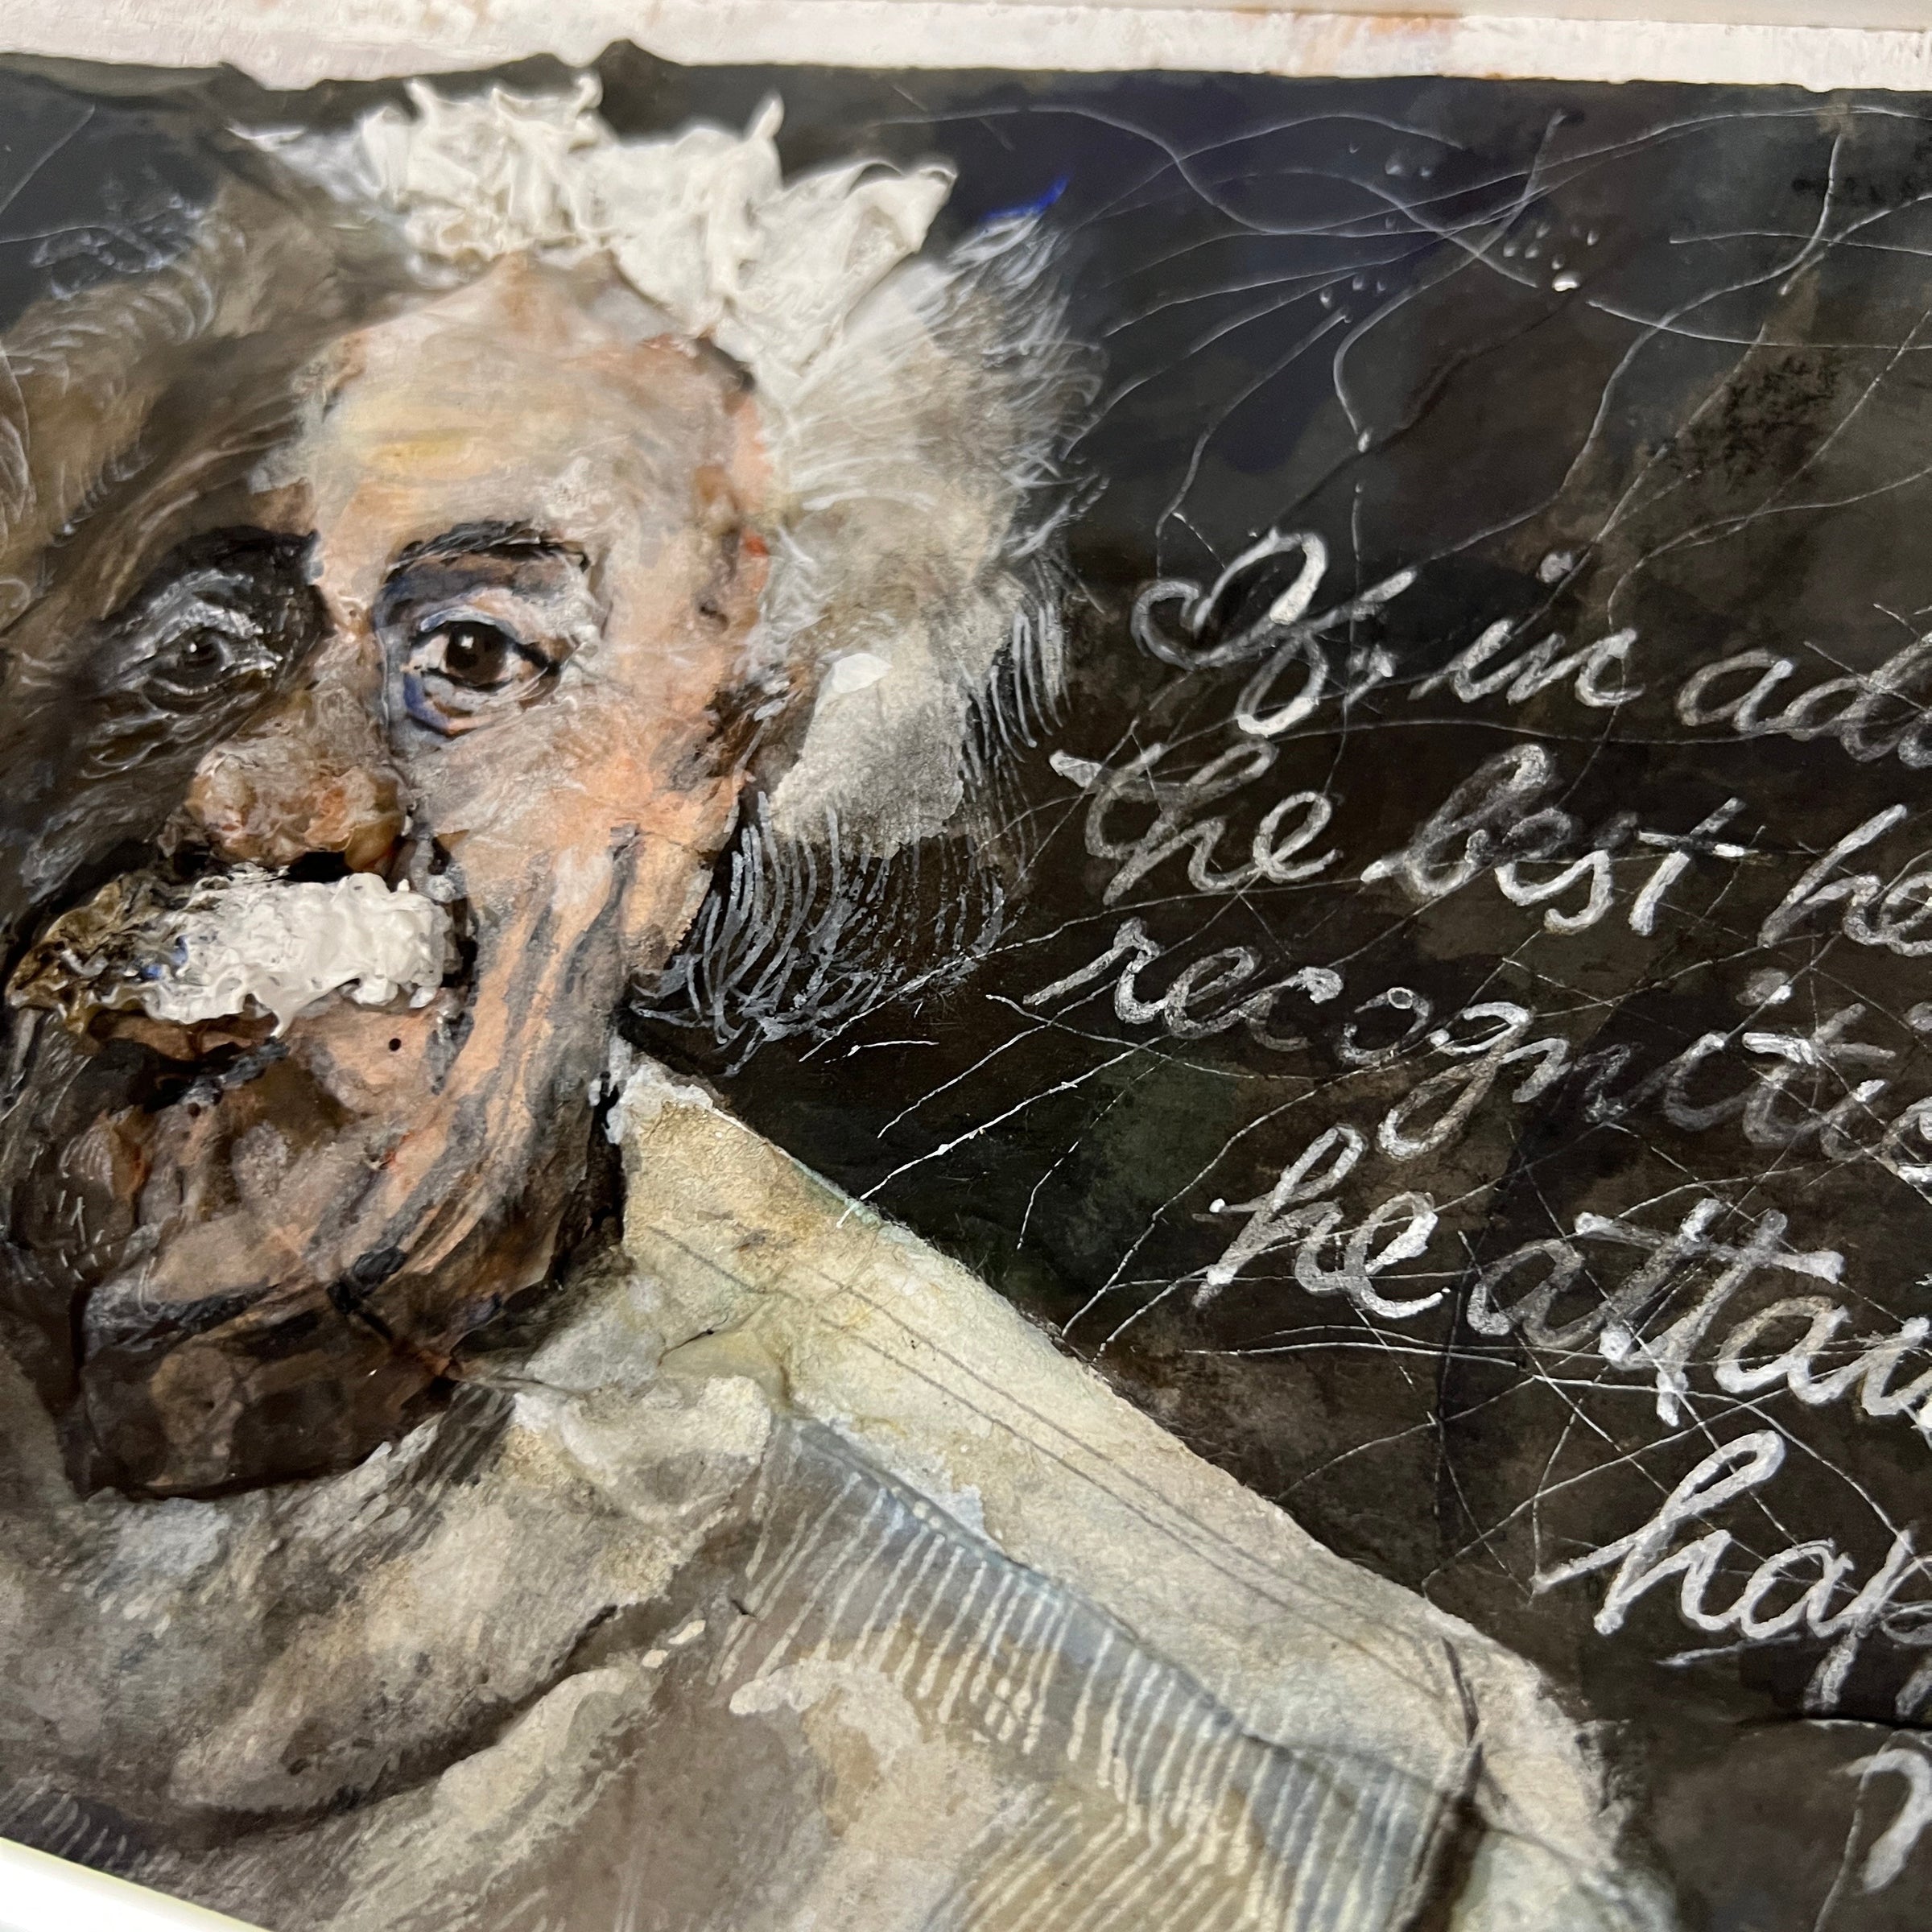 If, in
the best
recognitio
he attai
hap